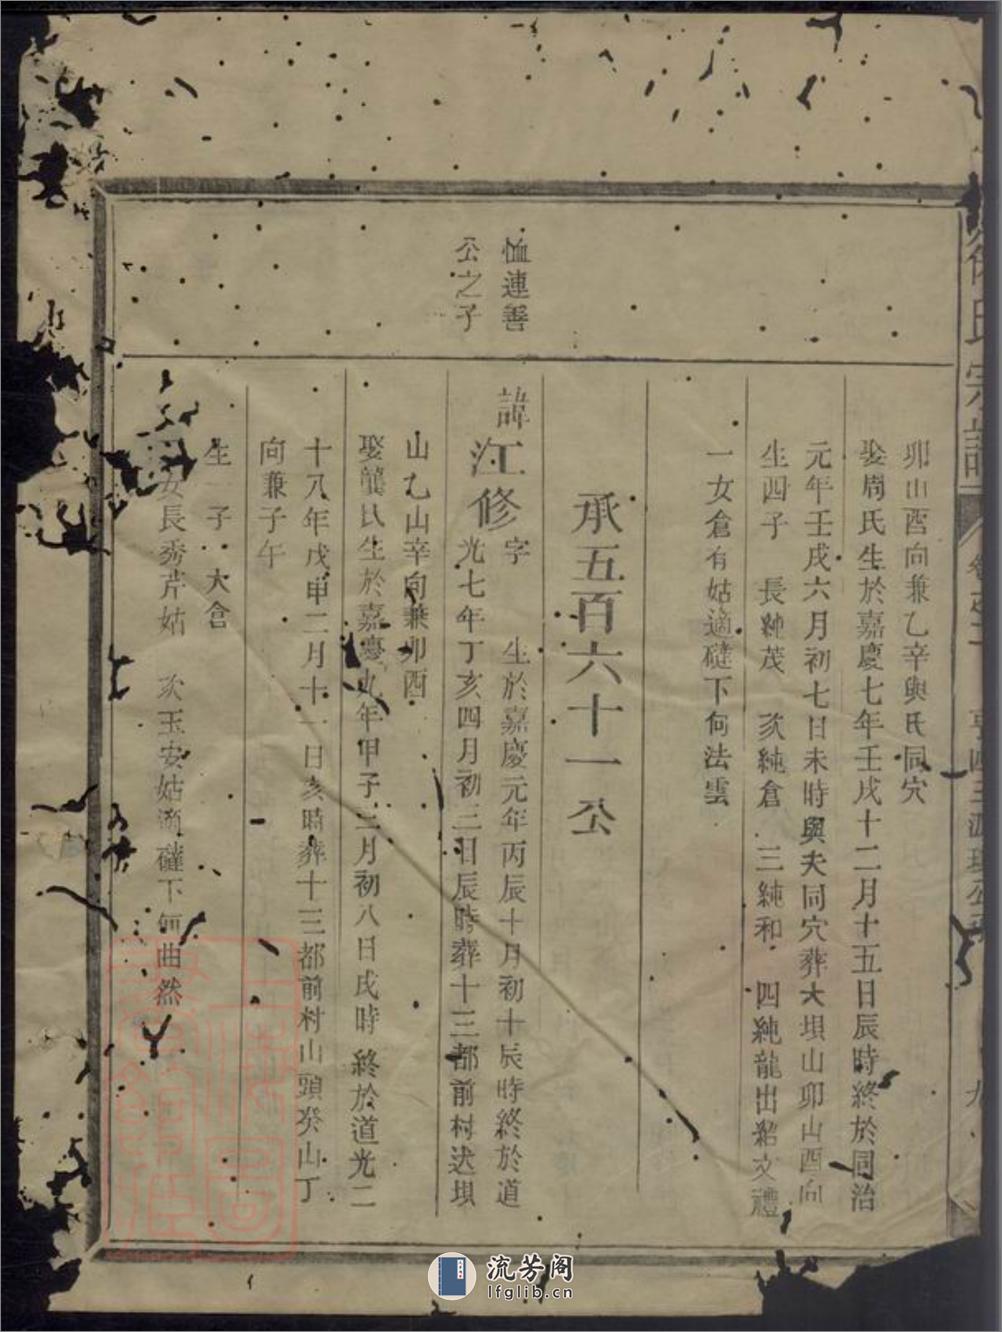 氏宗譜
卯山酉向兼乙辛與氏同穴
娶周氏生於嘉慶七年壬戌十二月十五日辰時終於同治
元年壬戌六月初七日未時與夫同穴葬大垻山卯山酉向
生四子 長純茂 次純倉 三純和 四純龍出紹文禮
一女倉有姑適礎下何法雲
承五百六十一公
恤連善
公之子
諱江修字 生於嘉慶元年丙辰十月初十辰時終於道
光七年丁亥四月初二日辰時葬十三都前村决垻
山乙山辛向兼卯酉
娶龔氏生於嘉慶九年甲子三月初八日戌時終於道光二
十八年戊申二月十一日亥時葬十三都前村山頭癸山丁
向兼子午
生一子 大倉
女長秀芹姑 次玉安姑適下何曲然
九
流芳阁
lfglib.cn